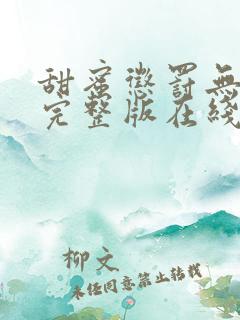 甜蜜懲罰無
完整版在綫
柳文
未经同意禁止转载